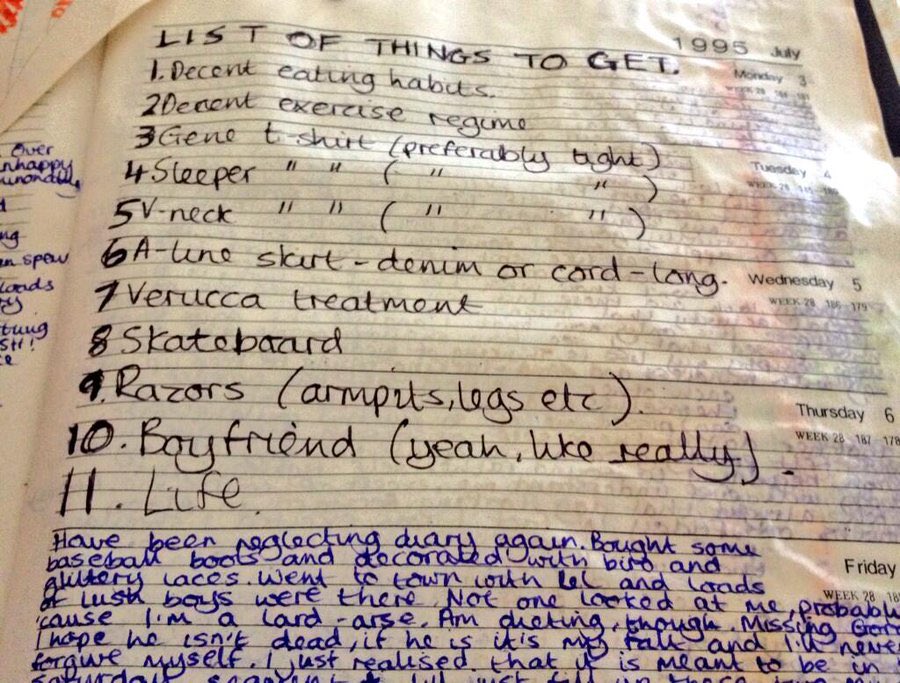 1995 July
LIST OF THINGS TO GET.
Monday 3
1. Decent eating habits.
2 Decent exercise regime
3 Gene t-shirt (preferably tight)
Tuesday 4
4 Sleeper " " ( " " )
5 V-neck " " ( " " )
6 A-line skirt - denim or cord - long.
Wednesday 5
WEEK 28 186 - 179
7 Verucca treatment
8 Skateboard
9. Razors (armpits, legs etc).
Thursday 6
WEEK 28 187 178
10. Boyfriend (yeah, like really).
11. Life.
Have been neglecting diary again. Bought some
baseball boots and decorated with biro and
Friday
glittery laces. Went to town with Lel and loads
WEEK 28 18
of lush boys were there. Not one looked at me, probably
'cause I'm a lard-arse. Am dieting, though. Missing
I hope he isn't dead, if he is it's my falt and I'll never
forgive myself. I just realised that it is meant to be in
Saturday I'll just fill up these
Over
nhappy
ng
en spew
loads